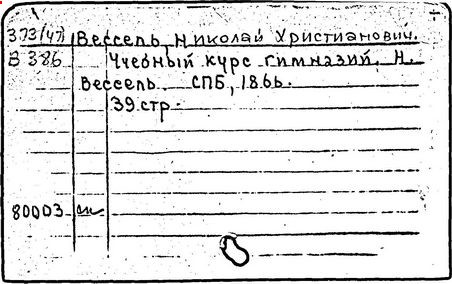 373(47) Вессель, Николай Христианович.
В 386 Учебный курс гимназий. Н.
Вессель СПБ, 1866.
39 стр.
80003 сп